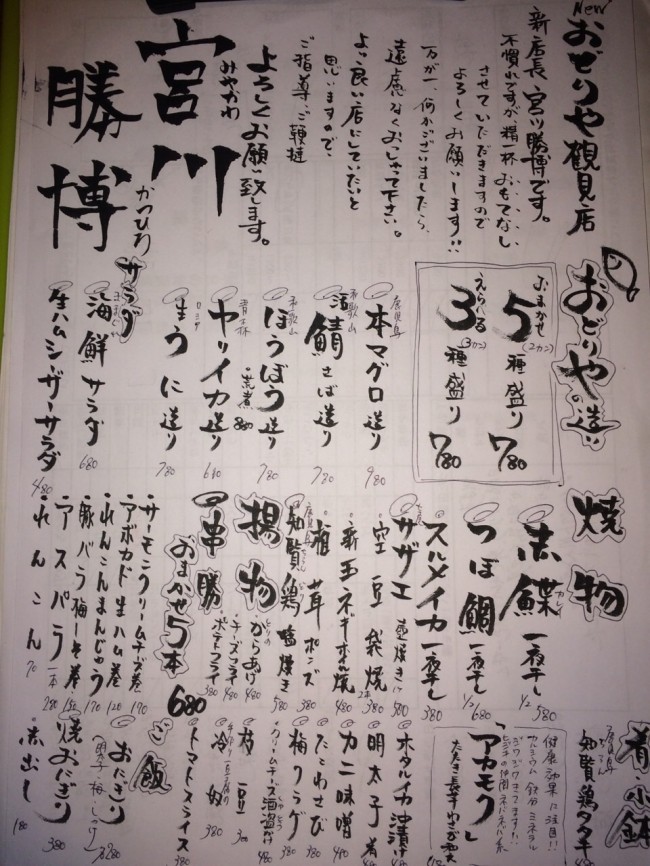 New
おどりや観見店
新店長 宮川勝博です。
不慣れですが、精一杯おもてなし
させていただきますので
よろしくお願いします!!
万が一、何かございましたら、
遠慮なくおっしゃって下さい。
よって良い店にしていたいと
思いますので、
ご指導、ご鞭撻
よろしくお願い致します。
宮川
みやかわ
勝博
かつひろ
おどりやの造り
おまかせ
5種盛り 780
(2カン)
えらべる
3種盛り 780
(3カン)
鹿児島
本マグロ造り 980
和歌山
鯖さば造り 780
和歌山
ほうぼう造り 780
ヤリイカ造り 680
生うに造り 780
サラダ
海鮮サラダ 680
生ハムシーザーサラダ 480
焼物
赤鰈 一夜干し 1/2 580
カレイ
つぼ鯛 一夜干し 1/2 680
スルメイカ 一夜干し 380
サザエ 壺焼き
空豆 袋焼
新玉ネギホイル焼 380
椎茸ポンズ 380
知覧鶏 塩焼き 580
揚物
とりのからあげ 480
チーズフライ 480
ポテトフライ 380
串勝
おまかせ5本 680
サーモンクリームチーズ巻 170
アボカド生ハム巻 120
れんこんまんじゅう 170
豚バラ梅しそ巻
アスパラ 一本 280
れんこん 70
肴・小鉢
鹿児島
知覧鶏タタキ
健康効果に注目!!
カルシウム 鉄分 ミネラル
「アカモク」
ホタルイカ沖漬け
明太子
カニ味噌
たこわさび 380
梅クラゲ 380
クリームチーズ酒盗がけ 480
枝豆
冷奴 380
トマトスライス 380
ご飯
おにぎり 280
焼おにぎり 380
赤出し 180